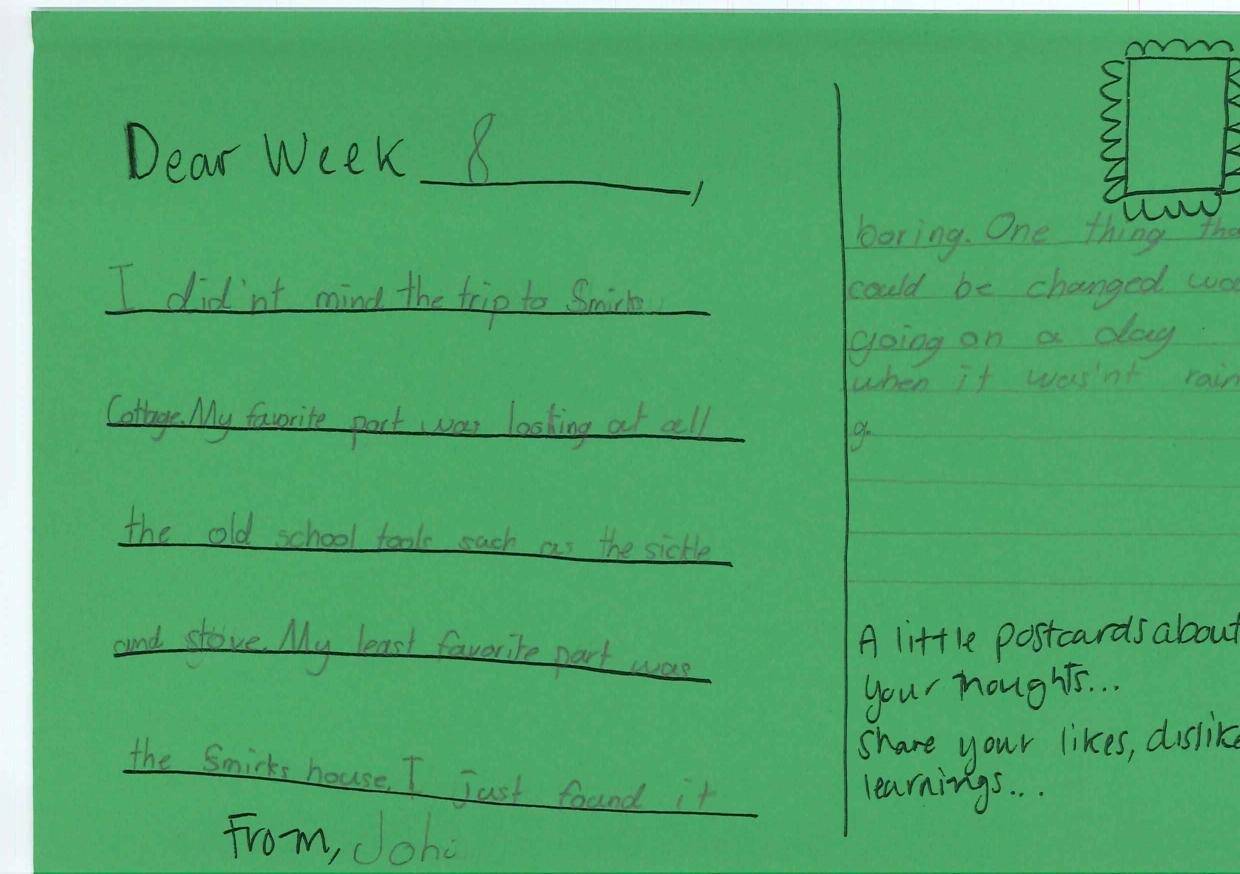 Dear Week 8,
I did'nt mind the trip to Smirks
Cottage. My favorite part was looking at all
the old school tools such as the sickle
and stove. My least favorite part was
the Smirks house. I just found it
From, Johi
boring. One thing tha
could be changed was
going on a day
when it was'nt rain
g.
A little postcards about
your thoughts...
share your likes, dislike
learnings...